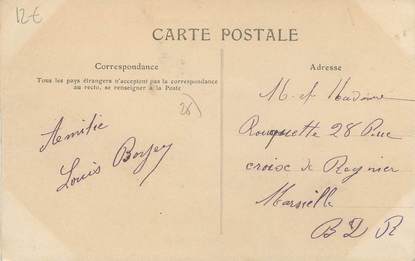 12€
CARTE POSTALE
Correspondance
Tous les pays étrangers n'acceptent pas la correspondance
au recto, se renseigner à la Poste
(28)
Amitié
Louis
Adresse
M. et Madame
Rouquette 28 Rue
croix de Regnier
Marseille
B D R